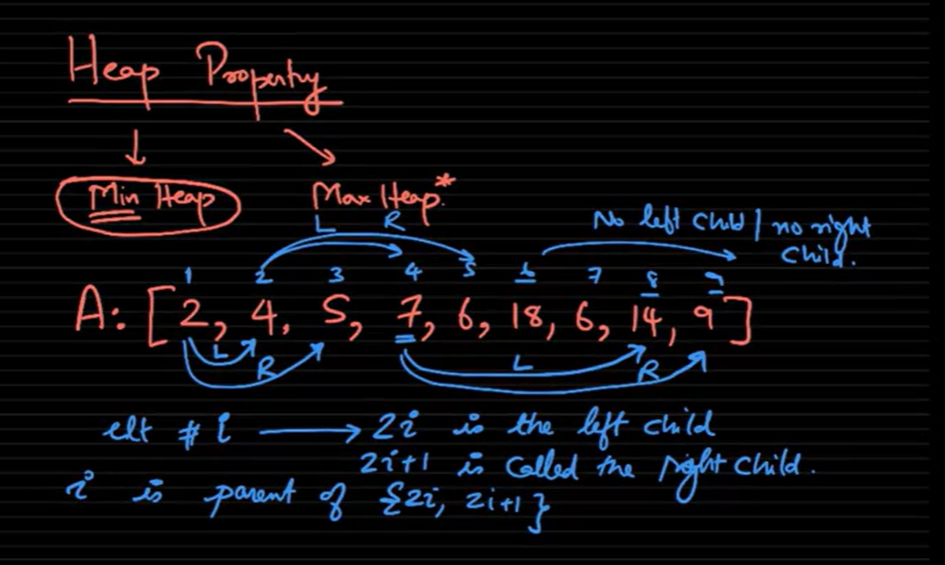 Heap Property
Min Heap
Max Heap*
L R
No left child / no right child.
1 2 3 4 5 6 7 8 9
A: [2, 4, 5, 7, 6, 18, 6, 14, 9]
L R L R
elt # i → 2i is the left child
2i+1 is called the right child.
i is parent of {2i, 2i+1}